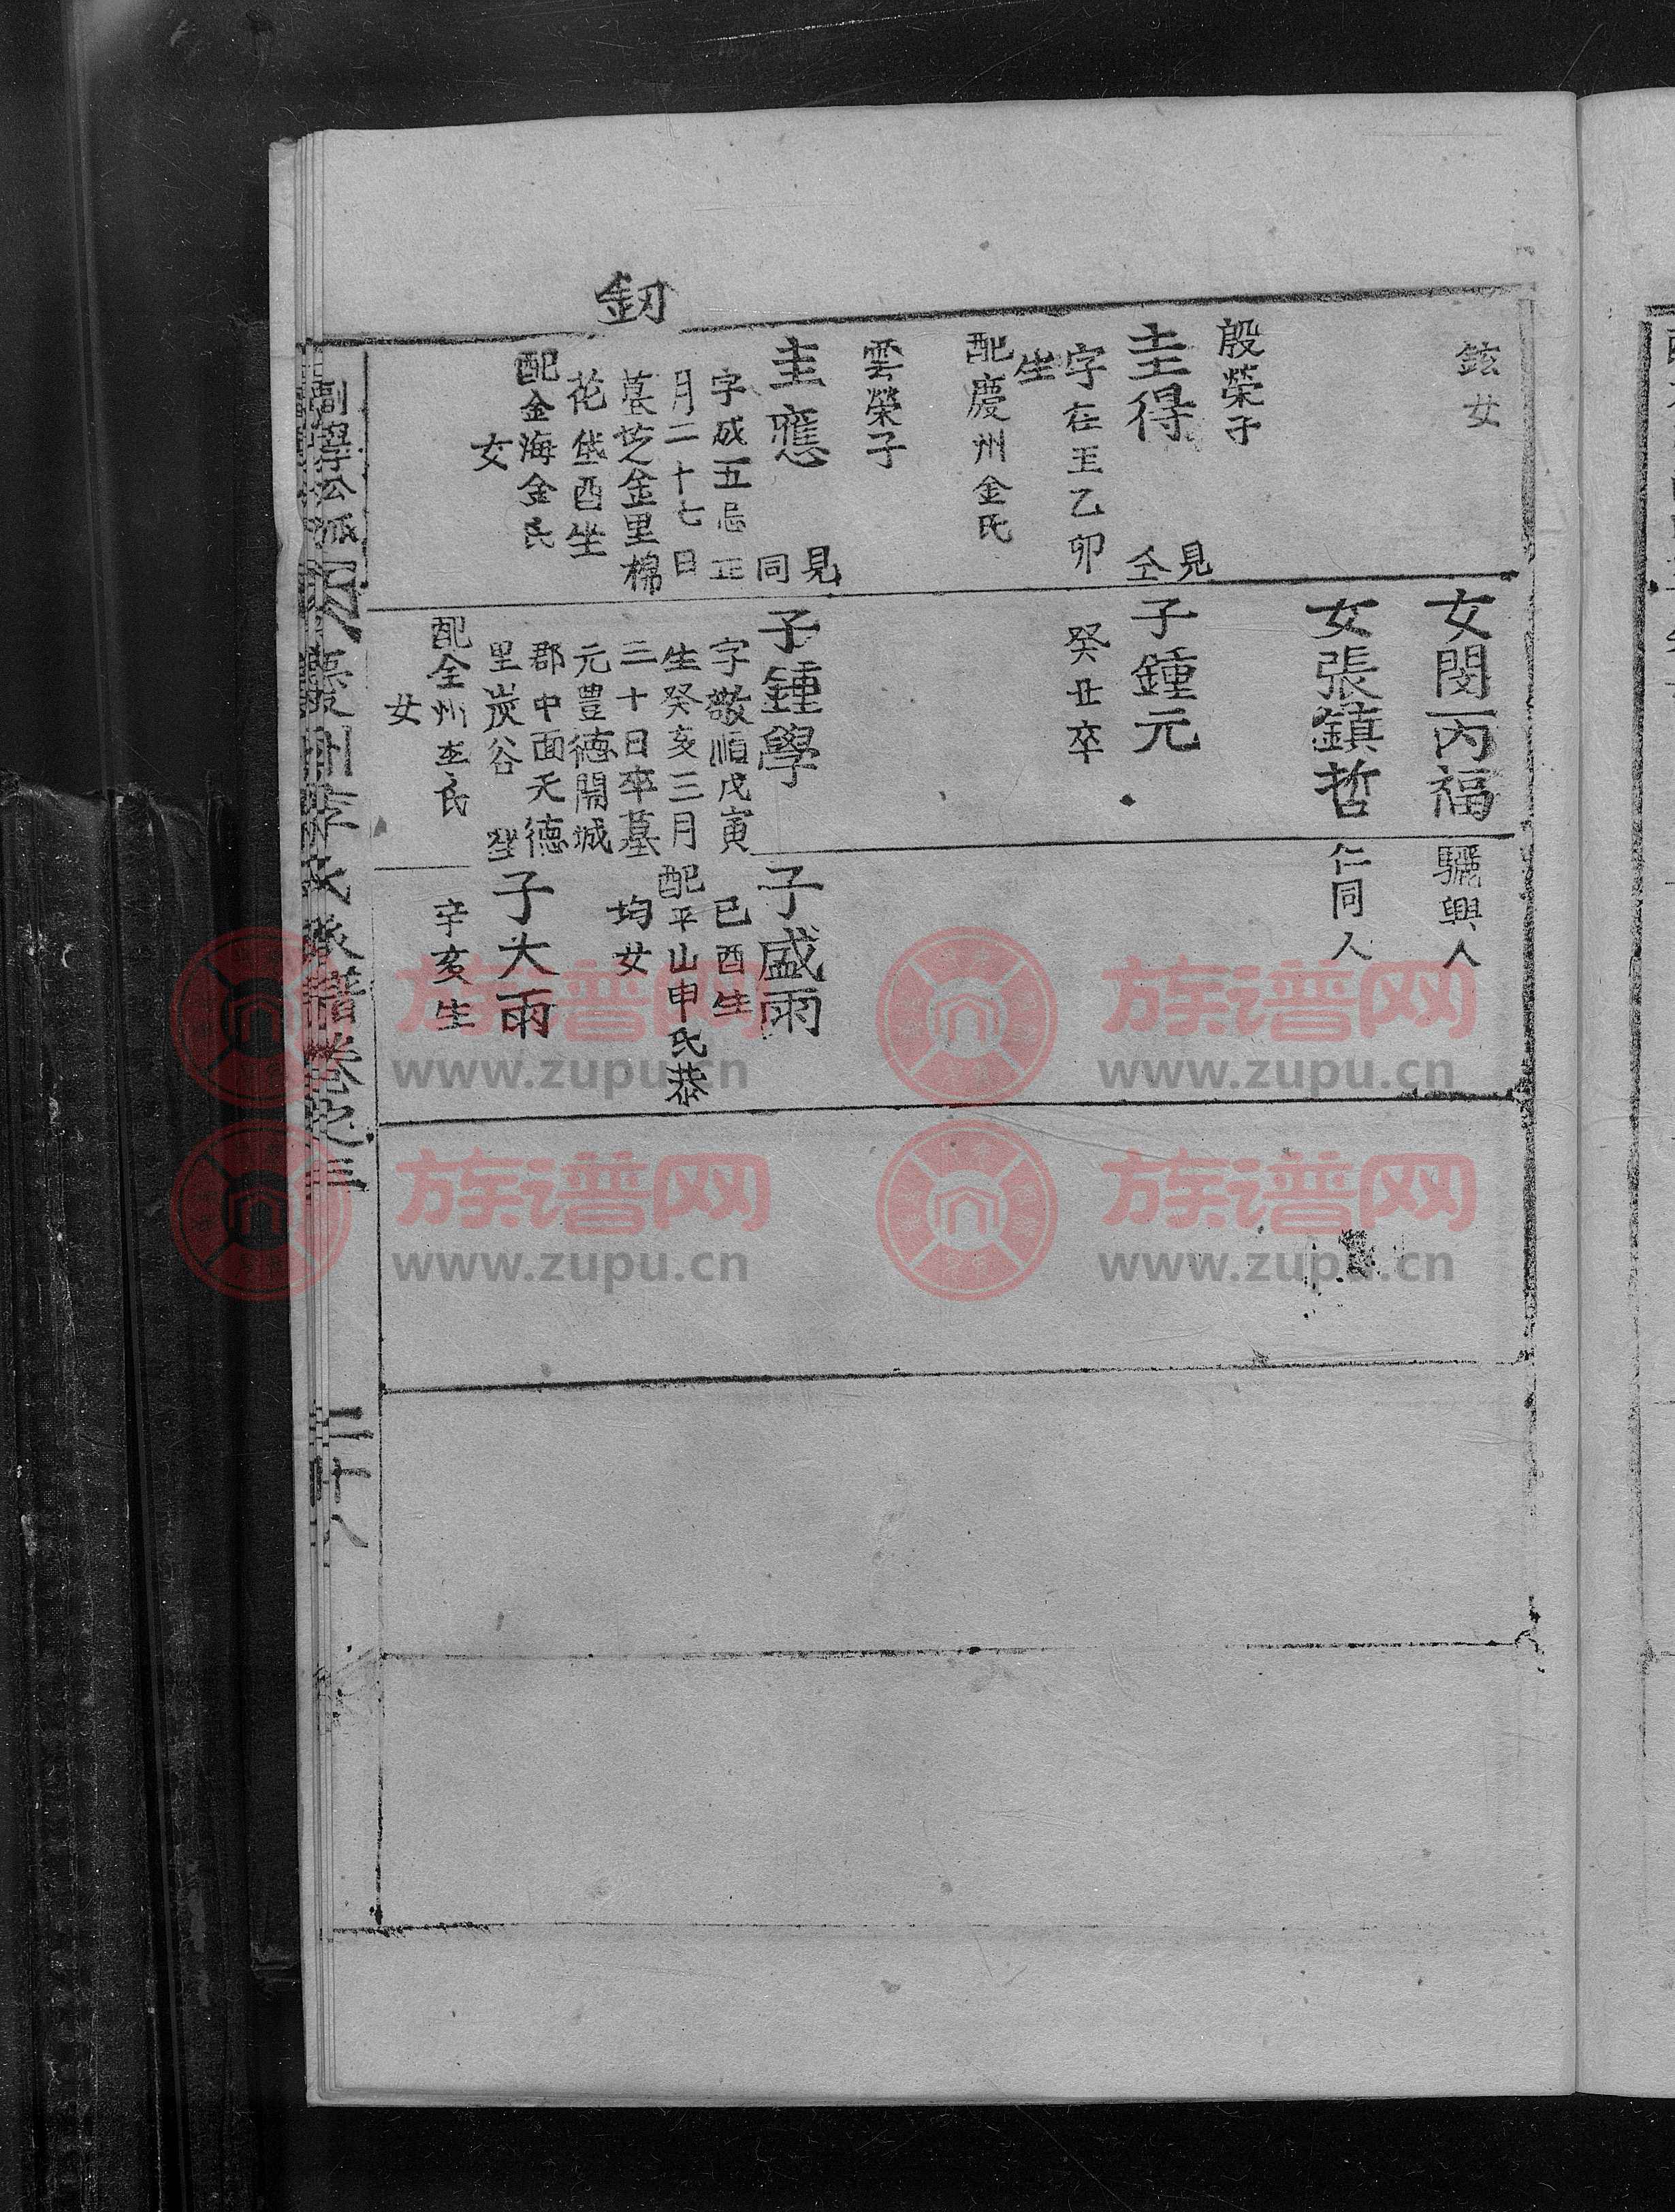 釼
鉉女
殷榮子
圭得
見
仝
字在玉乙卯
生
配慶州金氏
雲榮子
圭應
見
同
字成五忌正
月二十七日
墓芝金里棉
花垈酉坐
配金海金氏
女
女閔丙福
女張鎮哲
子鍾元
癸丑卒
子鍾學
字敬順戊寅
生癸亥三月
三十日卒墓
元豊德開城
郡中面天德
里炭谷
配全州李氏
女
驪興人
仁同人
子盛雨
己酉生
配平山申氏恭
均女
子大雨
辛亥生
副學公派
慶州李氏
譜卷之三
二十八
族谱网
www.zupu.cn
族谱网
www.zupu.cn
族谱网
www.zupu.cn
族谱网
www.zupu.cn